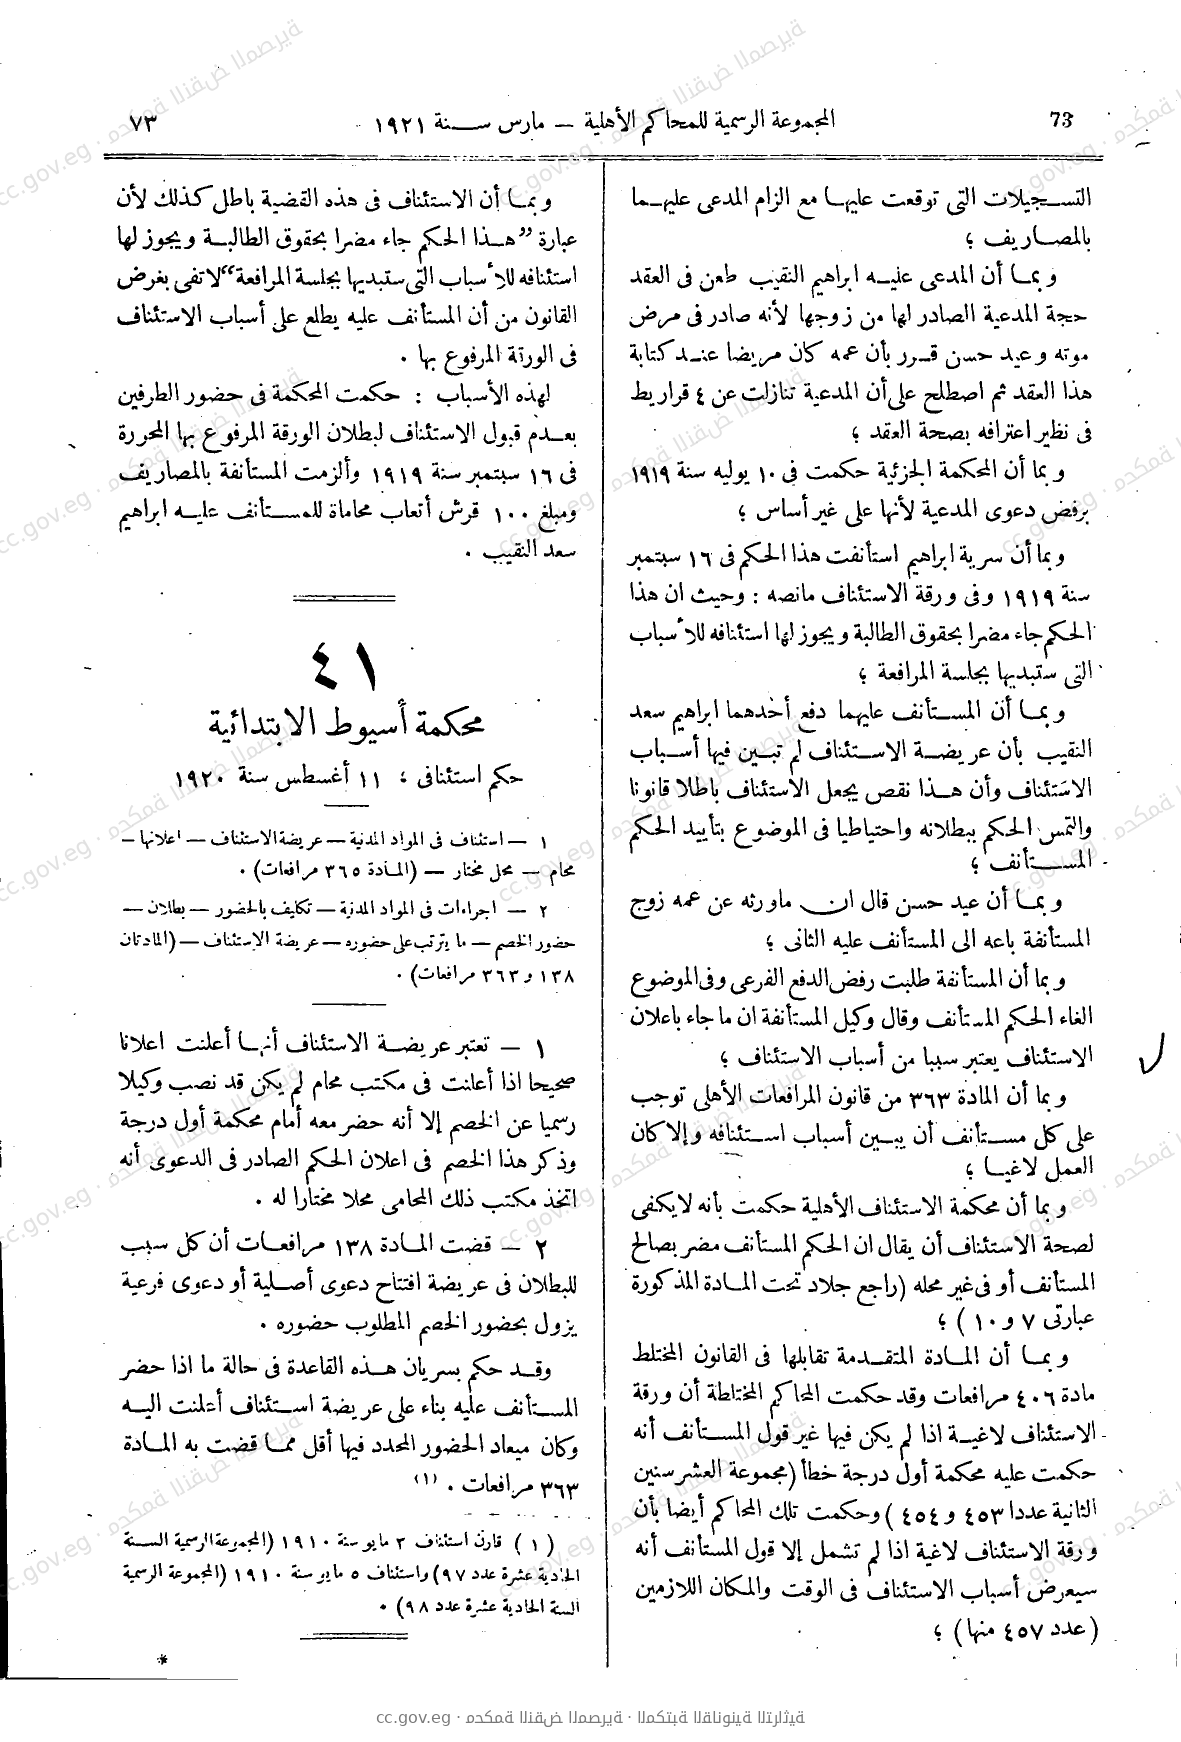 73
المجموعة الرسمية للمحاكم الأهلية – مارس سنة ١٩٢١
٧٣
التسجيلات التى توقعت عليها مع الزام المدعى عليهما
بالمصاريف ؛
وبما أن المدعى عليه ابراهيم النقيب طعن فى العقد
حجة المدعية الصادر لها من زوجها لأنه صادر فى مرض
موته وعيد حسن قرر بأن عمه كان مريضا عند كتابة
هذا العقد ثم اصطلح على أن المدعية تنازلت عن ٤ قراريط
فى نظير اعترافه بصحة العقد ؛
وبما أن المحكمة الجزئية حكمت فى ١٠ يوليه سنة ١٩١٩
برفض دعوى المدعية لأنها على غير أساس ؛
وبما أن سرية ابراهيم استأنفت هذا الحكم فى ١٦ سبتمبر
سنة ١٩١٩ وفى ورقة الاستئناف مانصه : وحيث ان هذا
الحكم جاء مضرا بحقوق الطالبة ويجوز لها استئنافه للأسباب
التى ستبديها بجلسة المرافعة ؛
وبما أن المستأنف عليهما دفع أحدهما ابراهيم سعد
النقيب بأن عريضة الاستئناف لم تبين فيها أسباب
الاستئناف وأن هذا نقص يجعل الاستئناف باطلا قانونا
والتمس الحكم ببطلانه واحتياطيا فى الموضوع بتأييد الحكم
المستأنف ؛
وبما أن عيد حسن قال ان ماورثه عن عمه زوج
المستأنفة باعه الى المستأنف عليه الثانى ؛
وبما أن المستأنفة طلبت رفض الدفع الفرعى وفى الموضوع
الغاء الحكم المستأنف وقال وكيل المستأنفة ان ما جاء باعلان
الاستئناف يعتبر سببا من أسباب الاستئناف ؛
وبما أن المادة ٣٦٣ من قانون المرافعات الأهلى توجب
على كل مستأنف أن يبين أسباب استئنافه وإلا كان
العمل لاغيا ؛
وبما أن محكمة الاستئناف الأهلية حكمت بأنه لا يكفى
لصحة الاستئناف أن يقال ان الحكم المستأنف مضر بصالح
المستأنف أو فى غير محله (راجع جلاد تحت المادة المذكورة
عبارتى ٧ و ١٠ ) ؛
وبما أن المادة المتقدمة تقابلها فى القانون المختلط
مادة ٤٠٦ مرافعات وقد حكمت المحاكم المختلطة أن ورقة
الاستئناف لاغية اذا لم يكن فيها غير قول المستأنف أنه
حكمت عليه محكمة أول درجة خطأ (مجموعة العشر سنين
الثانية عددا ٤٥٣ و ٤٥٤ ) وحكمت تلك المحاكم أيضا بأن
ورقة الاستئناف لاغية اذا لم تشمل إلا قول المستأنف أنه
سيعرض أسباب الاستئناف فى الوقت والمكان اللازمين
(عدد ٤٥٧ منها) ؛
وبما أن الاستئناف فى هذه القضية باطل كذلك لأن
عبارة "هذا الحكم جاء مضرا بحقوق الطالبة ويجوز لها
استئنافه للأسباب التى ستبديها بجلسة المرافعة" لا تفى بغرض
القانون من أن المستأنف عليه يطلع على أسباب الاستئناف
فى الورقة المرفوع بها .
لهذه الأسباب : حكمت المحكمة فى حضور الطرفين
بعدم قبول الاستئناف لبطلان الورقة المرفوع بها المحررة
فى ١٦ سبتمبر سنة ١٩١٩ وألزمت المستأنفة بالمصاريف
ومبلغ ١٠٠ قرش أتعاب محاماة للمستأنف عليه ابراهيم
سعد النقيب .
٤١
محكمة أسيوط الابتدائية
حكم استئنافى ؛ ١١ أغسطس سنة ١٩٢٠
١ – استئناف فى المواد المدنية – عريضة الاستئناف – اعلانها –
محام – محل مختار – (المادة ٣٦٥ مرافعات) .
٢ – اجراءات فى المواد المدنية – تكليف بالحضور – بطلان –
حضور الخصم – ما يترتب على حضوره – عريضة الاستئناف – (المادتان
١٣٨ و ٣٦٣ مرافعات) .
١ – تعتبر عريضة الاستئناف أنها أعلنت اعلانا
صحيحا اذا أعلنت فى مكتب محام لم يكن قد نصب وكيلا
رسميا عن الخصم إلا أنه حضر معه أمام محكمة أول درجة
وذكر هذا الخصم فى اعلان الحكم الصادر فى الدعوى أنه
اتخذ مكتب ذلك المحامى محلا مختارا له .
٢ – قضت المادة ١٣٨ مرافعات أن كل سبب
للبطلان فى عريضة افتتاح دعوى أصلية أو دعوى فرعية
يزول بحضور الخصم المطلوب حضوره .
وقد حكم بسريان هذه القاعدة فى حالة ما اذا حضر
المستأنف عليه بناء على عريضة استئناف أعلنت اليه
وكان ميعاد الحضور المحدد فيها أقل مما قضت به المادة
٣٦٣ مرافعات . (١)
(١) قارن استئناف ٣ مايو سنة ١٩١٠ (المجموعة الرسمية السنة
الحادية عشرة عدد ٩٧) واستئناف ٥ مايو سنة ١٩١٠ (المجموعة الرسمية
السنة الحادية عشرة عدد ٩٨) .
*
cc.gov.eg · محكمة النقض المصرية · المكتبة القانونية التراثية